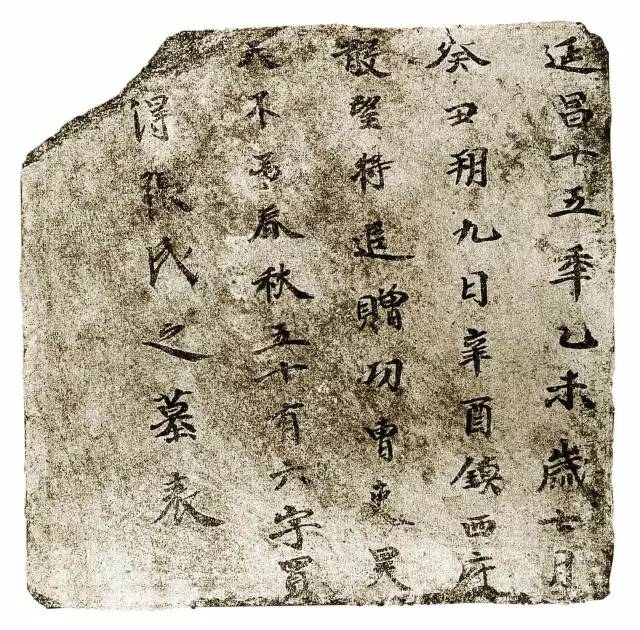 延昌十五秊乙未歲七月
癸丑朔九日辛酉鎮西府
散望將追贈功曹吏昊
天不弔春秋五十有六字買
得張氏之墓表